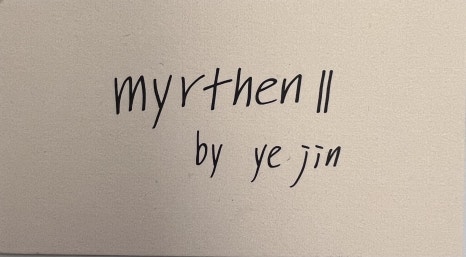 myrthen ||
by ye jin